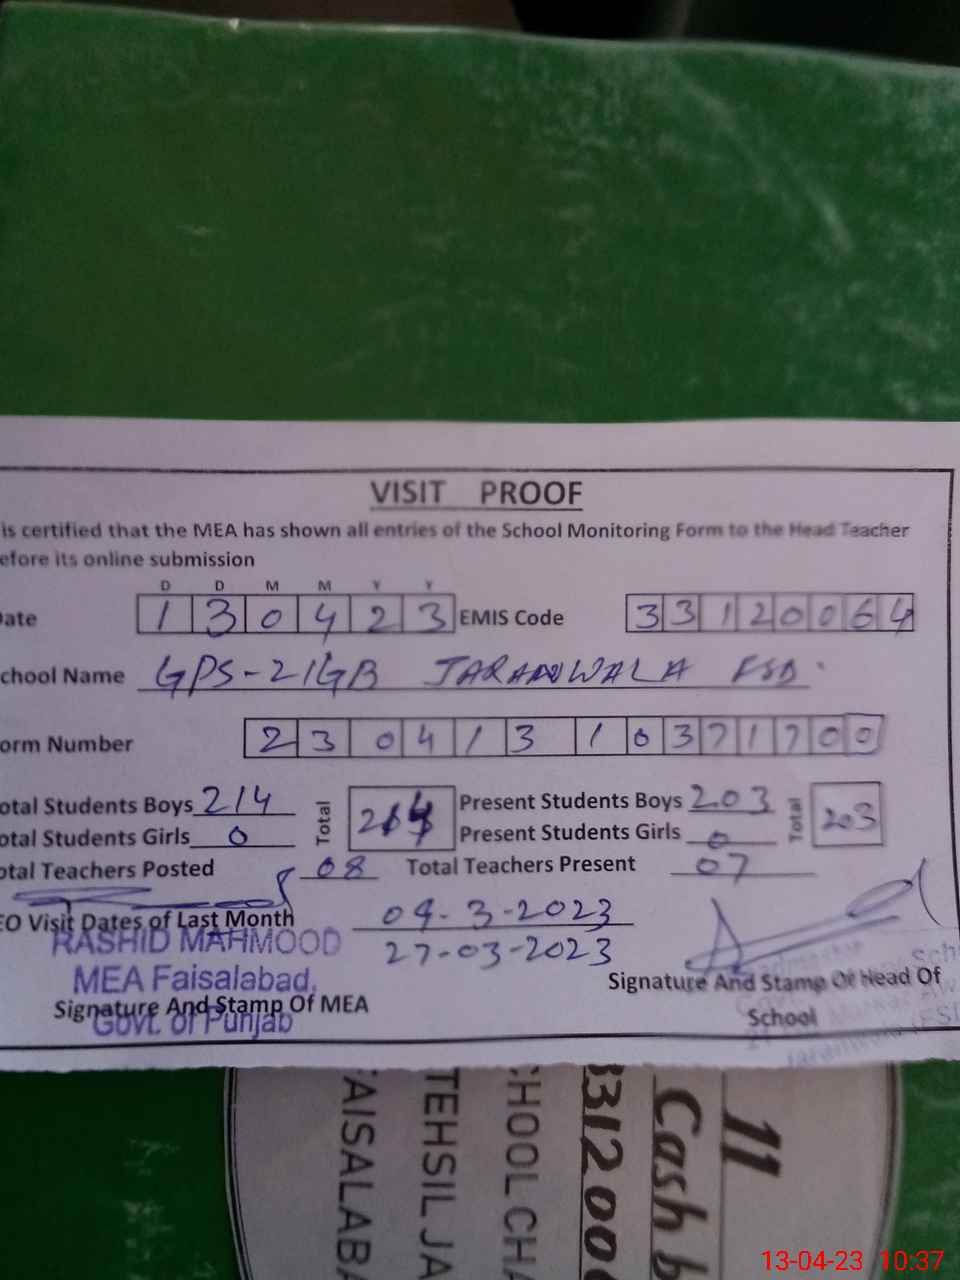 VISIT PROOF
is certified that the MEA has shown all entries of the School Monitoring Form to the Head Teacher
efore its online submission
D D M M Y Y
ate 1 3 0 4 2 3 EMIS Code 3 3 1 2 0 0 6 4
chool Name GPS-21GB JARANWALA FSD.
orm Number 2 3 0 4 1 3 1 0 3 7 1 7 0 0
otal Students Boys 214 Total 214 Present Students Boys 203 Total 203
otal Students Girls 0 Present Students Girls 0
otal Teachers Posted 08 Total Teachers Present 07
EO Visit Dates of Last Month 09-3-2023
27-03-2023
RASHID MAHMOOD
MEA Faisalabad,
Govt. of Punjab
Signature And Stamp Of MEA
Signature And Stamp Of Head Of
School
11
Cash b
3312006
CHOOL CHA
TEHSIL JA
FAISALABA
13-04-23 10:37